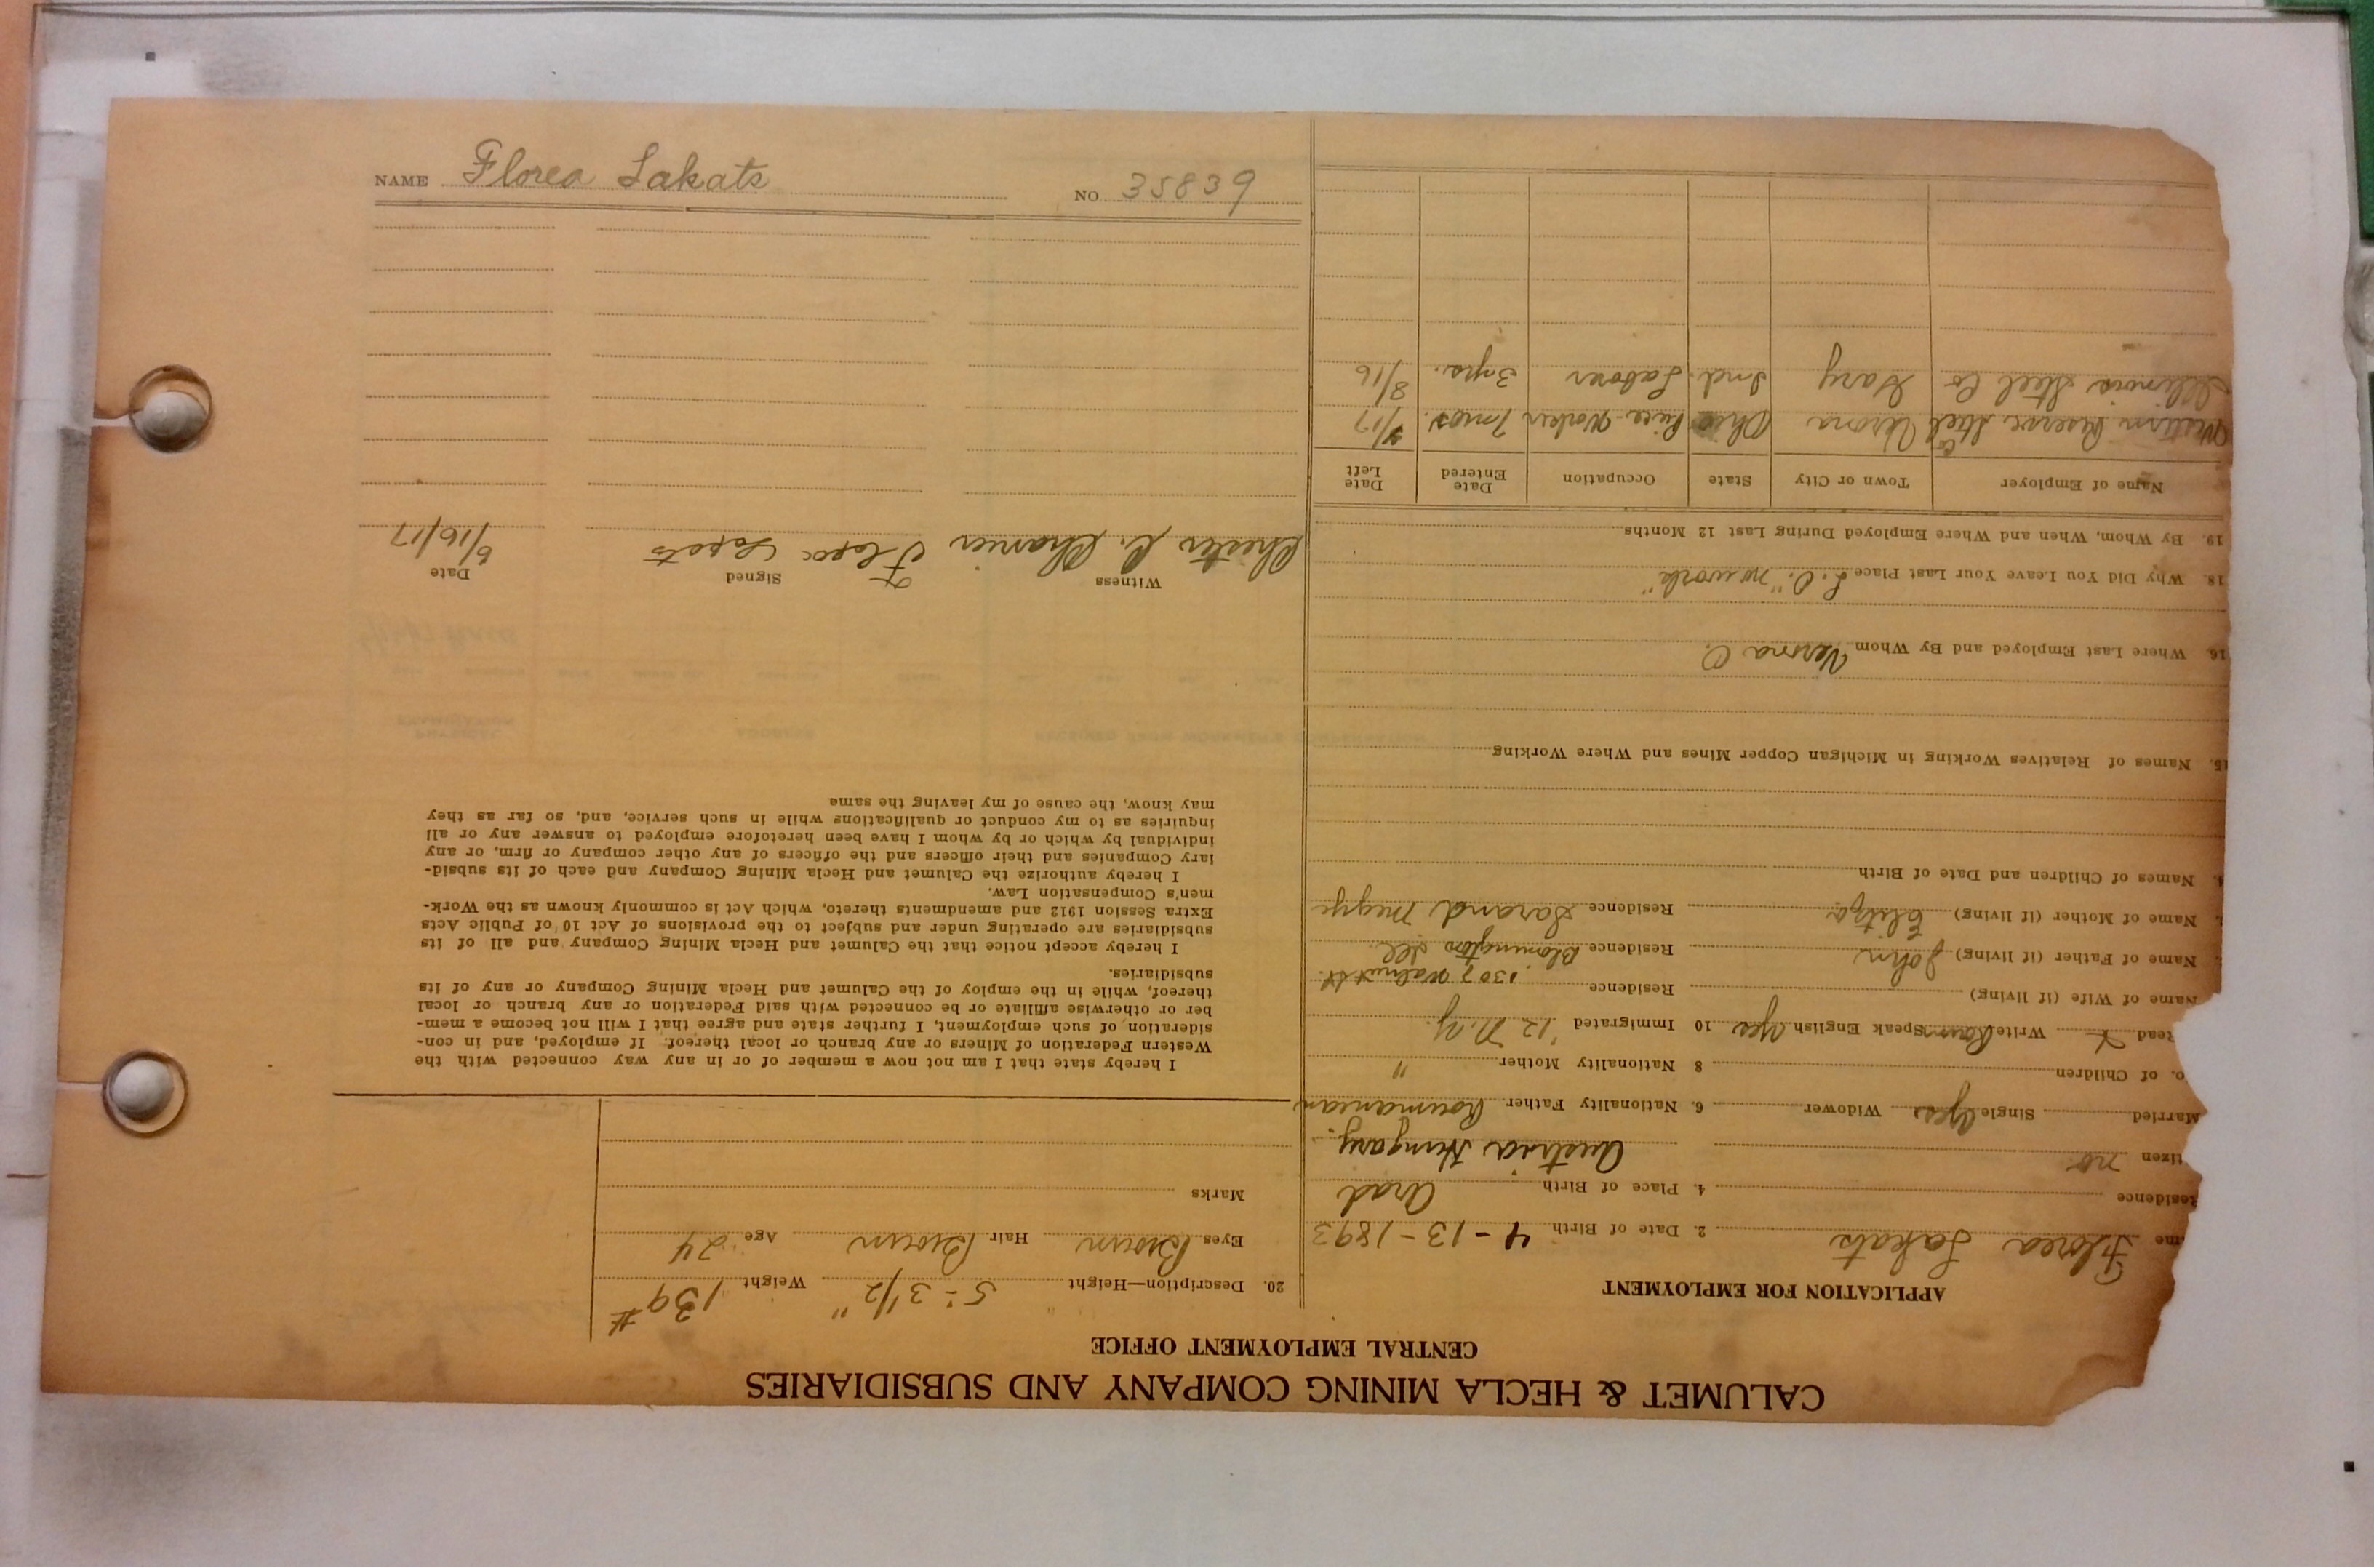 CALUMET & HECLA MINING COMPANY AND SUBSIDIARIES
CENTRAL EMPLOYMENT OFFICE
APPLICATION FOR EMPLOYMENT
me Florea Lakats 2. Date of Birth 4-13-1893
Residence 4. Place of Birth Arad
tizen no Austria Hungary.
Married Single Yes Widower 6. Nationality Father Roumanian
o. of Children 8 Nationality Mother "
Read Write Roum Speak English Yes 10 Immigrated '12 N.Y.
Name of Wife (if living) Residence 1307 Walnut St.
Name of Father (if living) John Residence Bloomington Ill
Name of Mother (if living) Residence Megye
4. Names of Children and Date of Birth
15. Names of Relatives Working in Michigan Copper Mines and Where Working
16. Where Last Employed and By Whom Verona O.
18. Why Did You Leave Your Last Place L.O. "no work"
19. By Whom, When and Where Employed During Last 12 Months
Name of Employer Town or City State Occupation Date Entered Date Left
Western Reserve Steel Co Verona Ohio Piece-Worker 7 mos. /17
Illinois Steel Co Gary Ind. Laborer 3 yrs. 8/16
20. Description—Height 5'-3 1/2" Weight 139#
Eyes Brown Hair Brown Age 24
Marks
I hereby state that I am not now a member of or in any way connected with the
Western Federation of Miners or any branch or local thereof. If employed, and in con-
sideration of such employment, I further state and agree that I will not become a mem-
ber or otherwise affiliate or be connected with said Federation or any branch or local
thereof, while in the employ of the Calumet and Hecla Mining Company or any of its
subsidiaries.
I hereby accept notice that the Calumet and Hecla Mining Company and all of its
subsidiaries are operating under and subject to the provisions of Act 10 of Public Acts
Extra Session 1912 and amendments thereto, which Act is commonly known as the Work-
men's Compensation Law.
I hereby authorize the Calumet and Hecla Mining Company and each of its subsid-
iary Companies and their officers and the officers of any other company or firm, or any
individual by which or by whom I have been heretofore employed to answer any or all
inquiries as to my conduct or qualifications while in such service, and, so far as they
may know, the cause of my leaving the same
Witness Signed Date
Chester C. Florea Lakats 6/16/17
NAME Florea Lakats NO. 35839